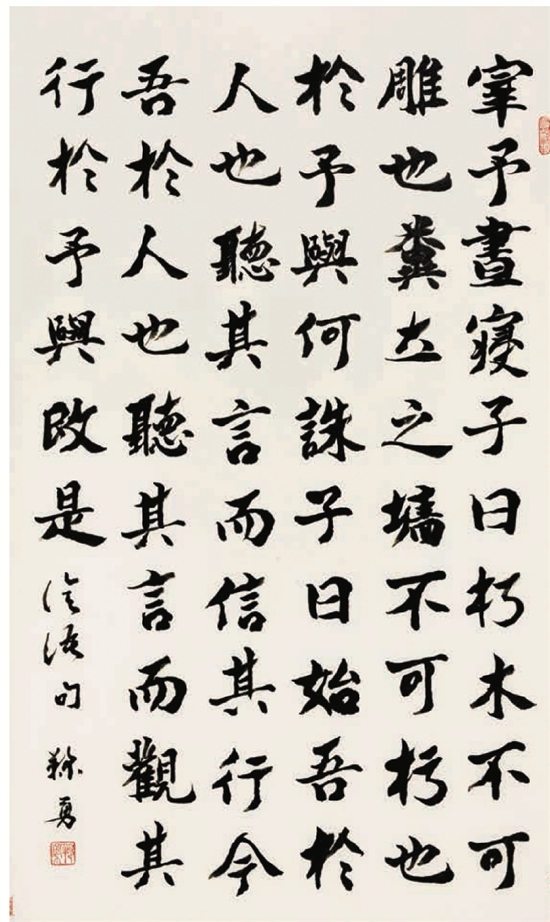 宰予晝寢子曰朽木不可
雕也糞土之墻不可杇也
於予與何誅子曰始吾於
人也聽其言而信其行今
吾於人也聽其言而觀其
行於予與改是 論語句 勇